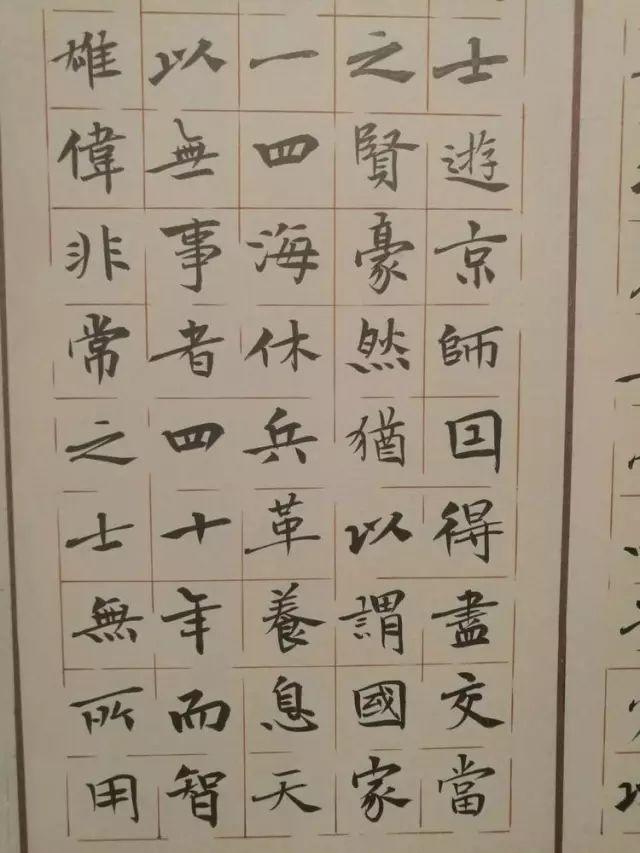 士遊京師囙得盡交當
之賢豪然猶以謂國家
一四海休兵革養息天
以無事者四十年而智
雄偉非常之士無所用